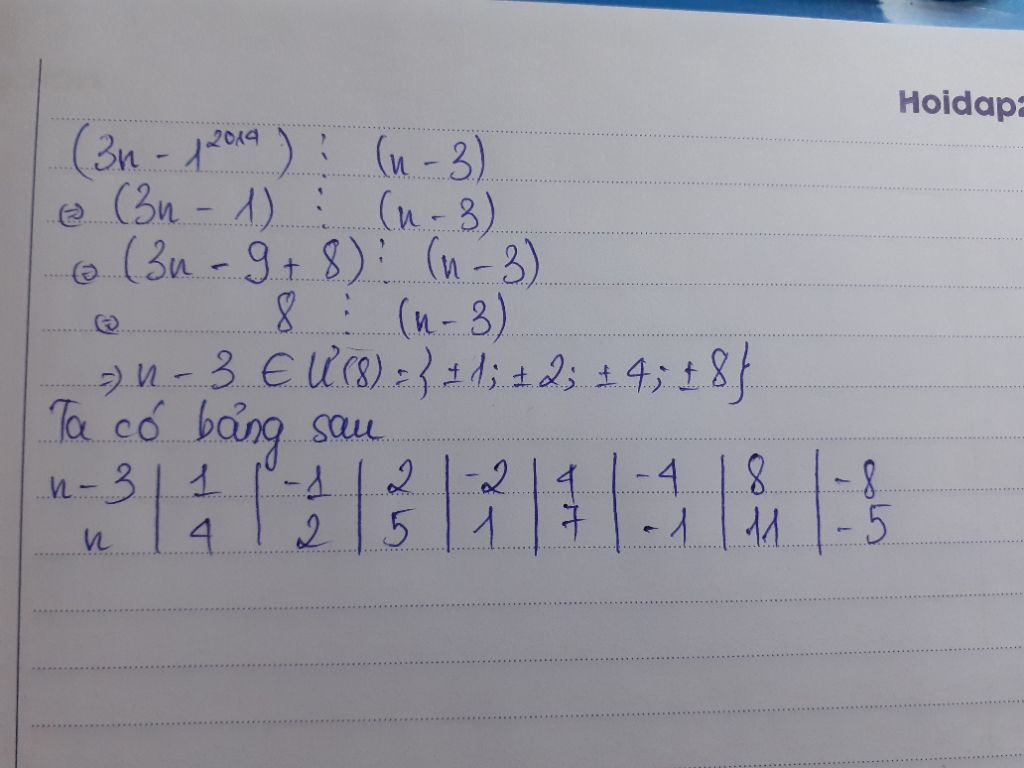 Hoidap2
(3n - 1²⁰¹⁹) ⋮ (n - 3)
⇔ (3n - 1) ⋮ (n - 3)
⇔ (3n - 9 + 8) ⋮ (n - 3)
⇔ 8 ⋮ (n - 3)
⇒ n - 3 ∈ Ư(8) = { ±1; ±2; ±4; ±8}
Ta có bảng sau
n - 3 | 1 | -1 | 2 | -2 | 4 | -4 | 8 | -8
n | 4 | 2 | 5 | 1 | 7 | -1 | 11 | -5